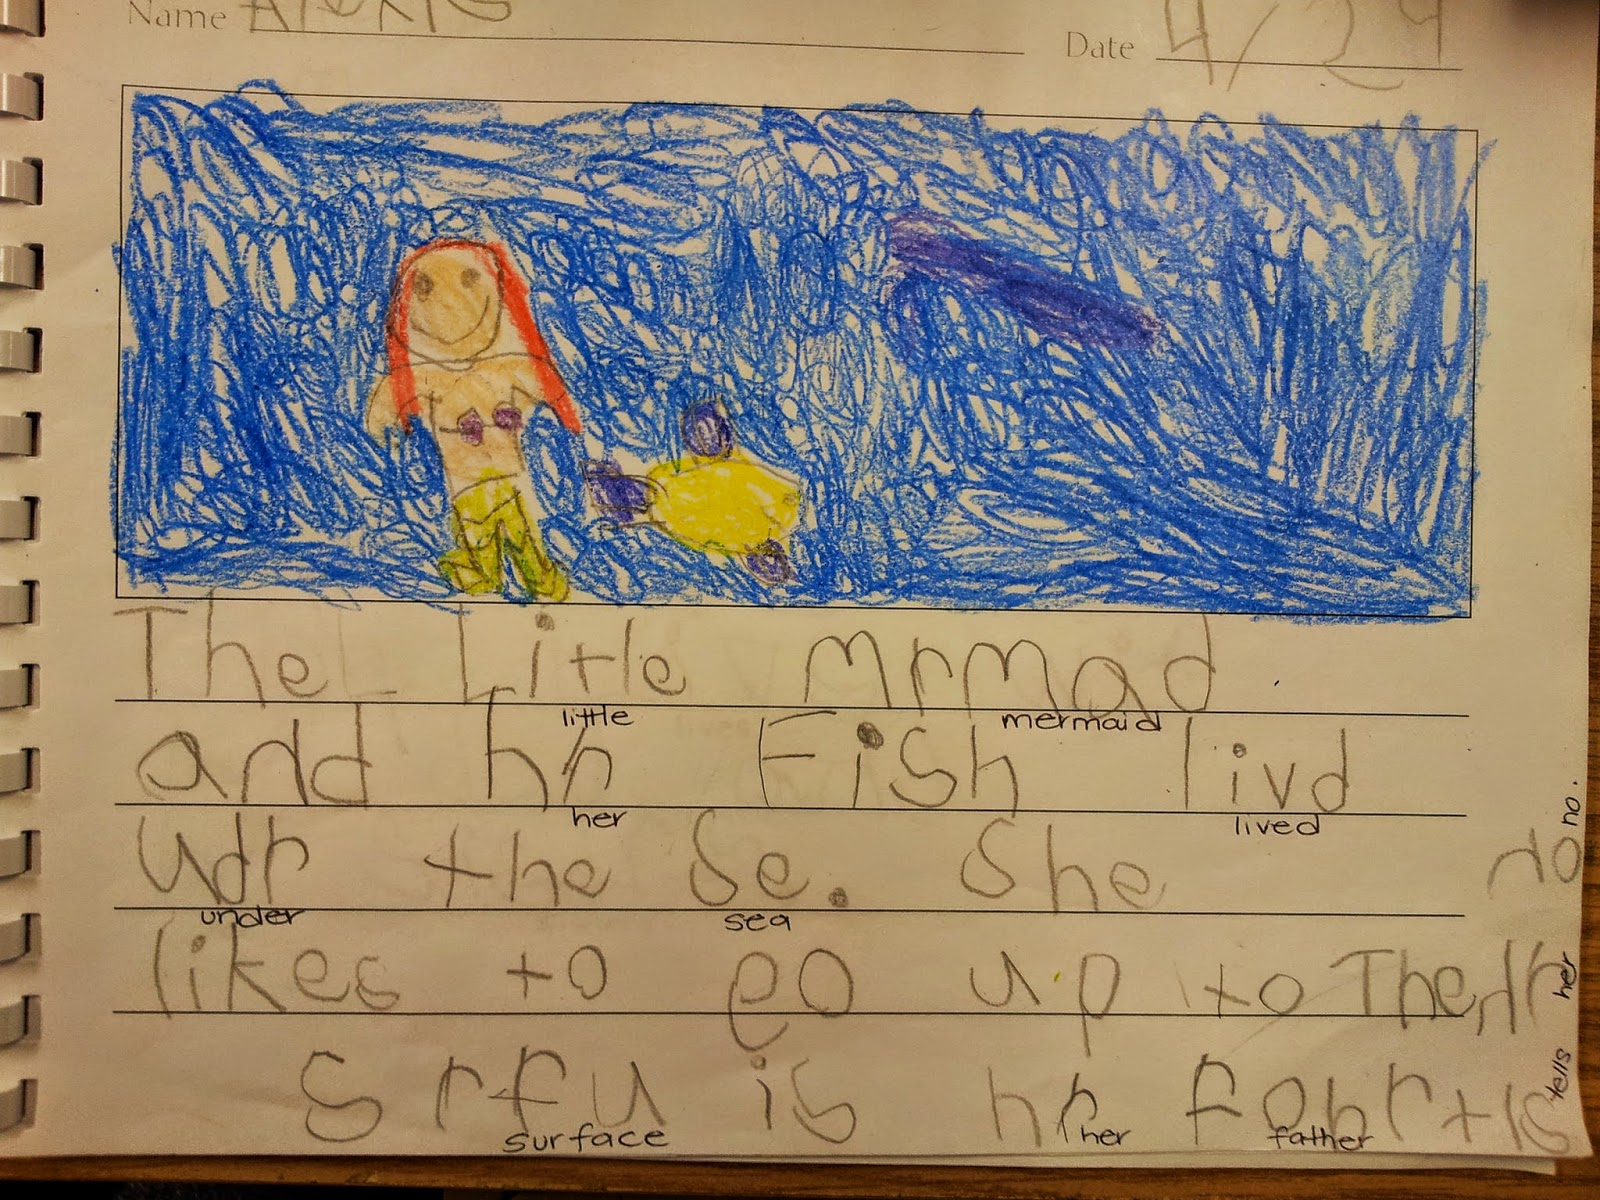 Name Alexis Date 4/29
The Litle mrmad
little mermaid
and hr Fish livd
her lived
udr the Se. She
under sea
likes to go up to The
Srfu is hr Fahr tls
surface her father tells
hr her
no no.